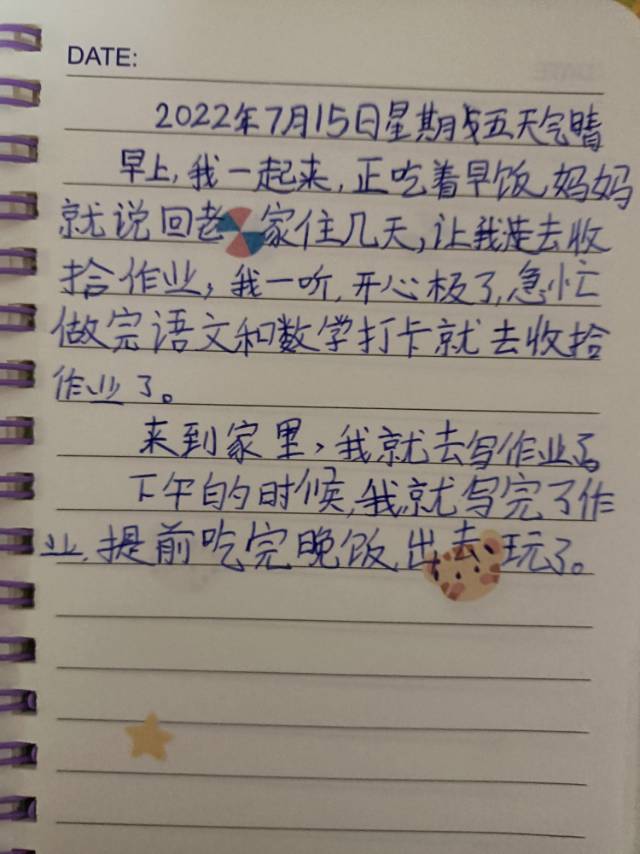 DATE:
2022年7月15日星期五天气晴
早上,我一起来,正吃着早饭,妈妈
就说回老家住几天,让我去收
拾作业,我一听,开心极了,急忙
做完语文和数学打卡就去收拾
作业了。
来到家里,我就去写作业了。
下午的时候,我就写完了作
业,提前吃完晚饭出去玩了。